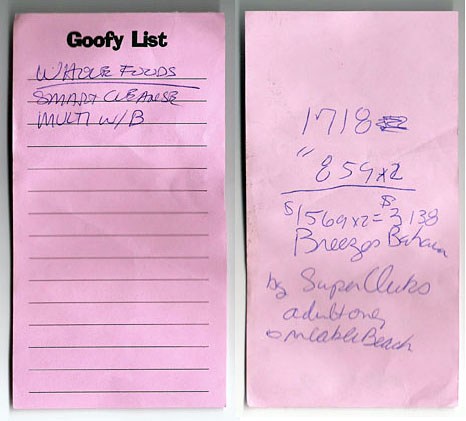 Goofy List
WHOLE FOODS
SMART CLEANSE
MULTI W/B
1718
" 859x2
$1569x2=$3138
Breezes Bahama
by SuperClubs
adult only
on Cable Beach